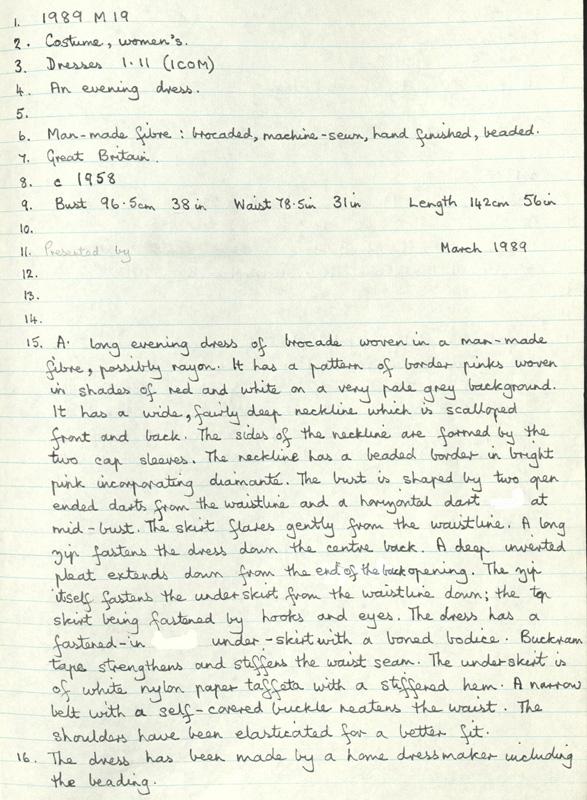 1. 1989 M 19
2. Costume, women's.
3. Dresses 1.11 (ICOM)
4. An evening dress.
5.
6. Man-made fibre : brocaded, machine-sewn, hand finished, beaded.
7. Great Britain.
8. c 1958
9. Bust 96.5cm 38in Waist 78.5in 31in Length 142cm 56in
10.
11. Presented by March 1989
12.
13.
14.
15. A. long evening dress of brocade woven in a man-made
fibre, possibly rayon. It has a pattern of border pinks woven
in shades of red and white on a very pale grey background.
It has a wide, fairly deep neckline which is scalloped
front and back. The sides of the neckline are formed by the
two cap sleeves. The neckline has a beaded border in bright
pink incorporating diamanté. The bust is shaped by two open
ended darts from the waistline and a horizontal dart at
mid-bust. The skirt flares gently from the waistline. A long
zip fastens the dress down the centre back. A deep inverted
pleat extends down from the end of the back opening. The zip
itself fastens the underskirt from the waistline down; the top
skirt being fastened by hooks and eyes. The dress has a
fastened-in under-skirt with a boned bodice. Buckram
tape strengthens and stiffens the waist seam. The underskirt is
of white nylon paper taffeta with a stiffened hem. A narrow
belt with a self-covered buckle neatens the waist. The
shoulders have been elasticated for a better fit.
16. The dress has been made by a home dressmaker including
the beading.